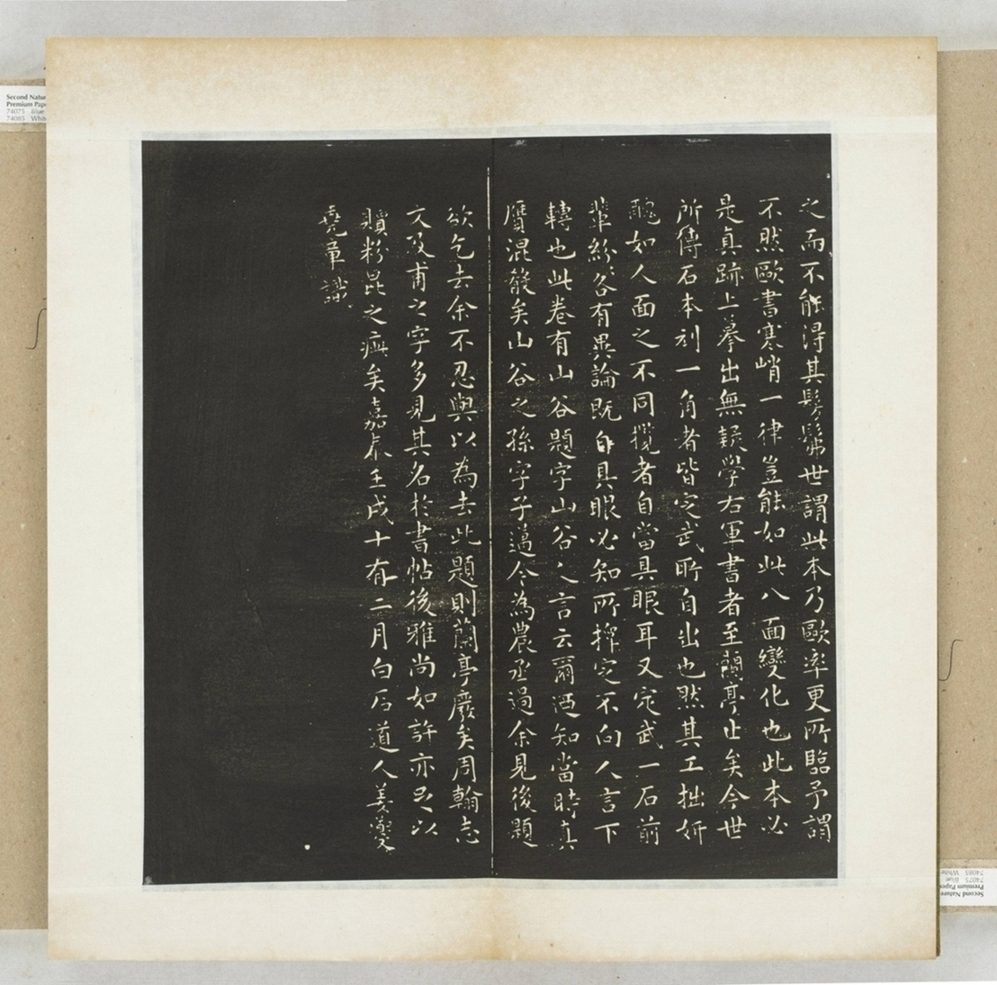 之而不能得其髣髴世謂此本乃歐率更所臨予謂
不然歐書寒峭一律豈能如此八面變化也此本必
是真跡上摹出無疑學右軍書者至蘭亭止矣今世
所傳石本刓一角者皆定武所自出也然其工拙妍
醜如人面之不同攬者自當具眼耳又定武一石前
輩紛各有異論既自具眼必知所擇定不向人言下
轉也此卷有山谷題字山谷之言云爾迺知當時真
贗混殽矣山谷之孫字子邁今為農丞過余見後題
欲乞去余不忍與以為去此題則蘭亭廢矣周翰志
文及甫之字多見其名於書帖後雅尚如許亦足以
贖粉昆之㾗矣嘉泰壬戌十有二月白石道人姜夔
堯章識
Second Nature
Premium Pape
74075 Blue
74083 White